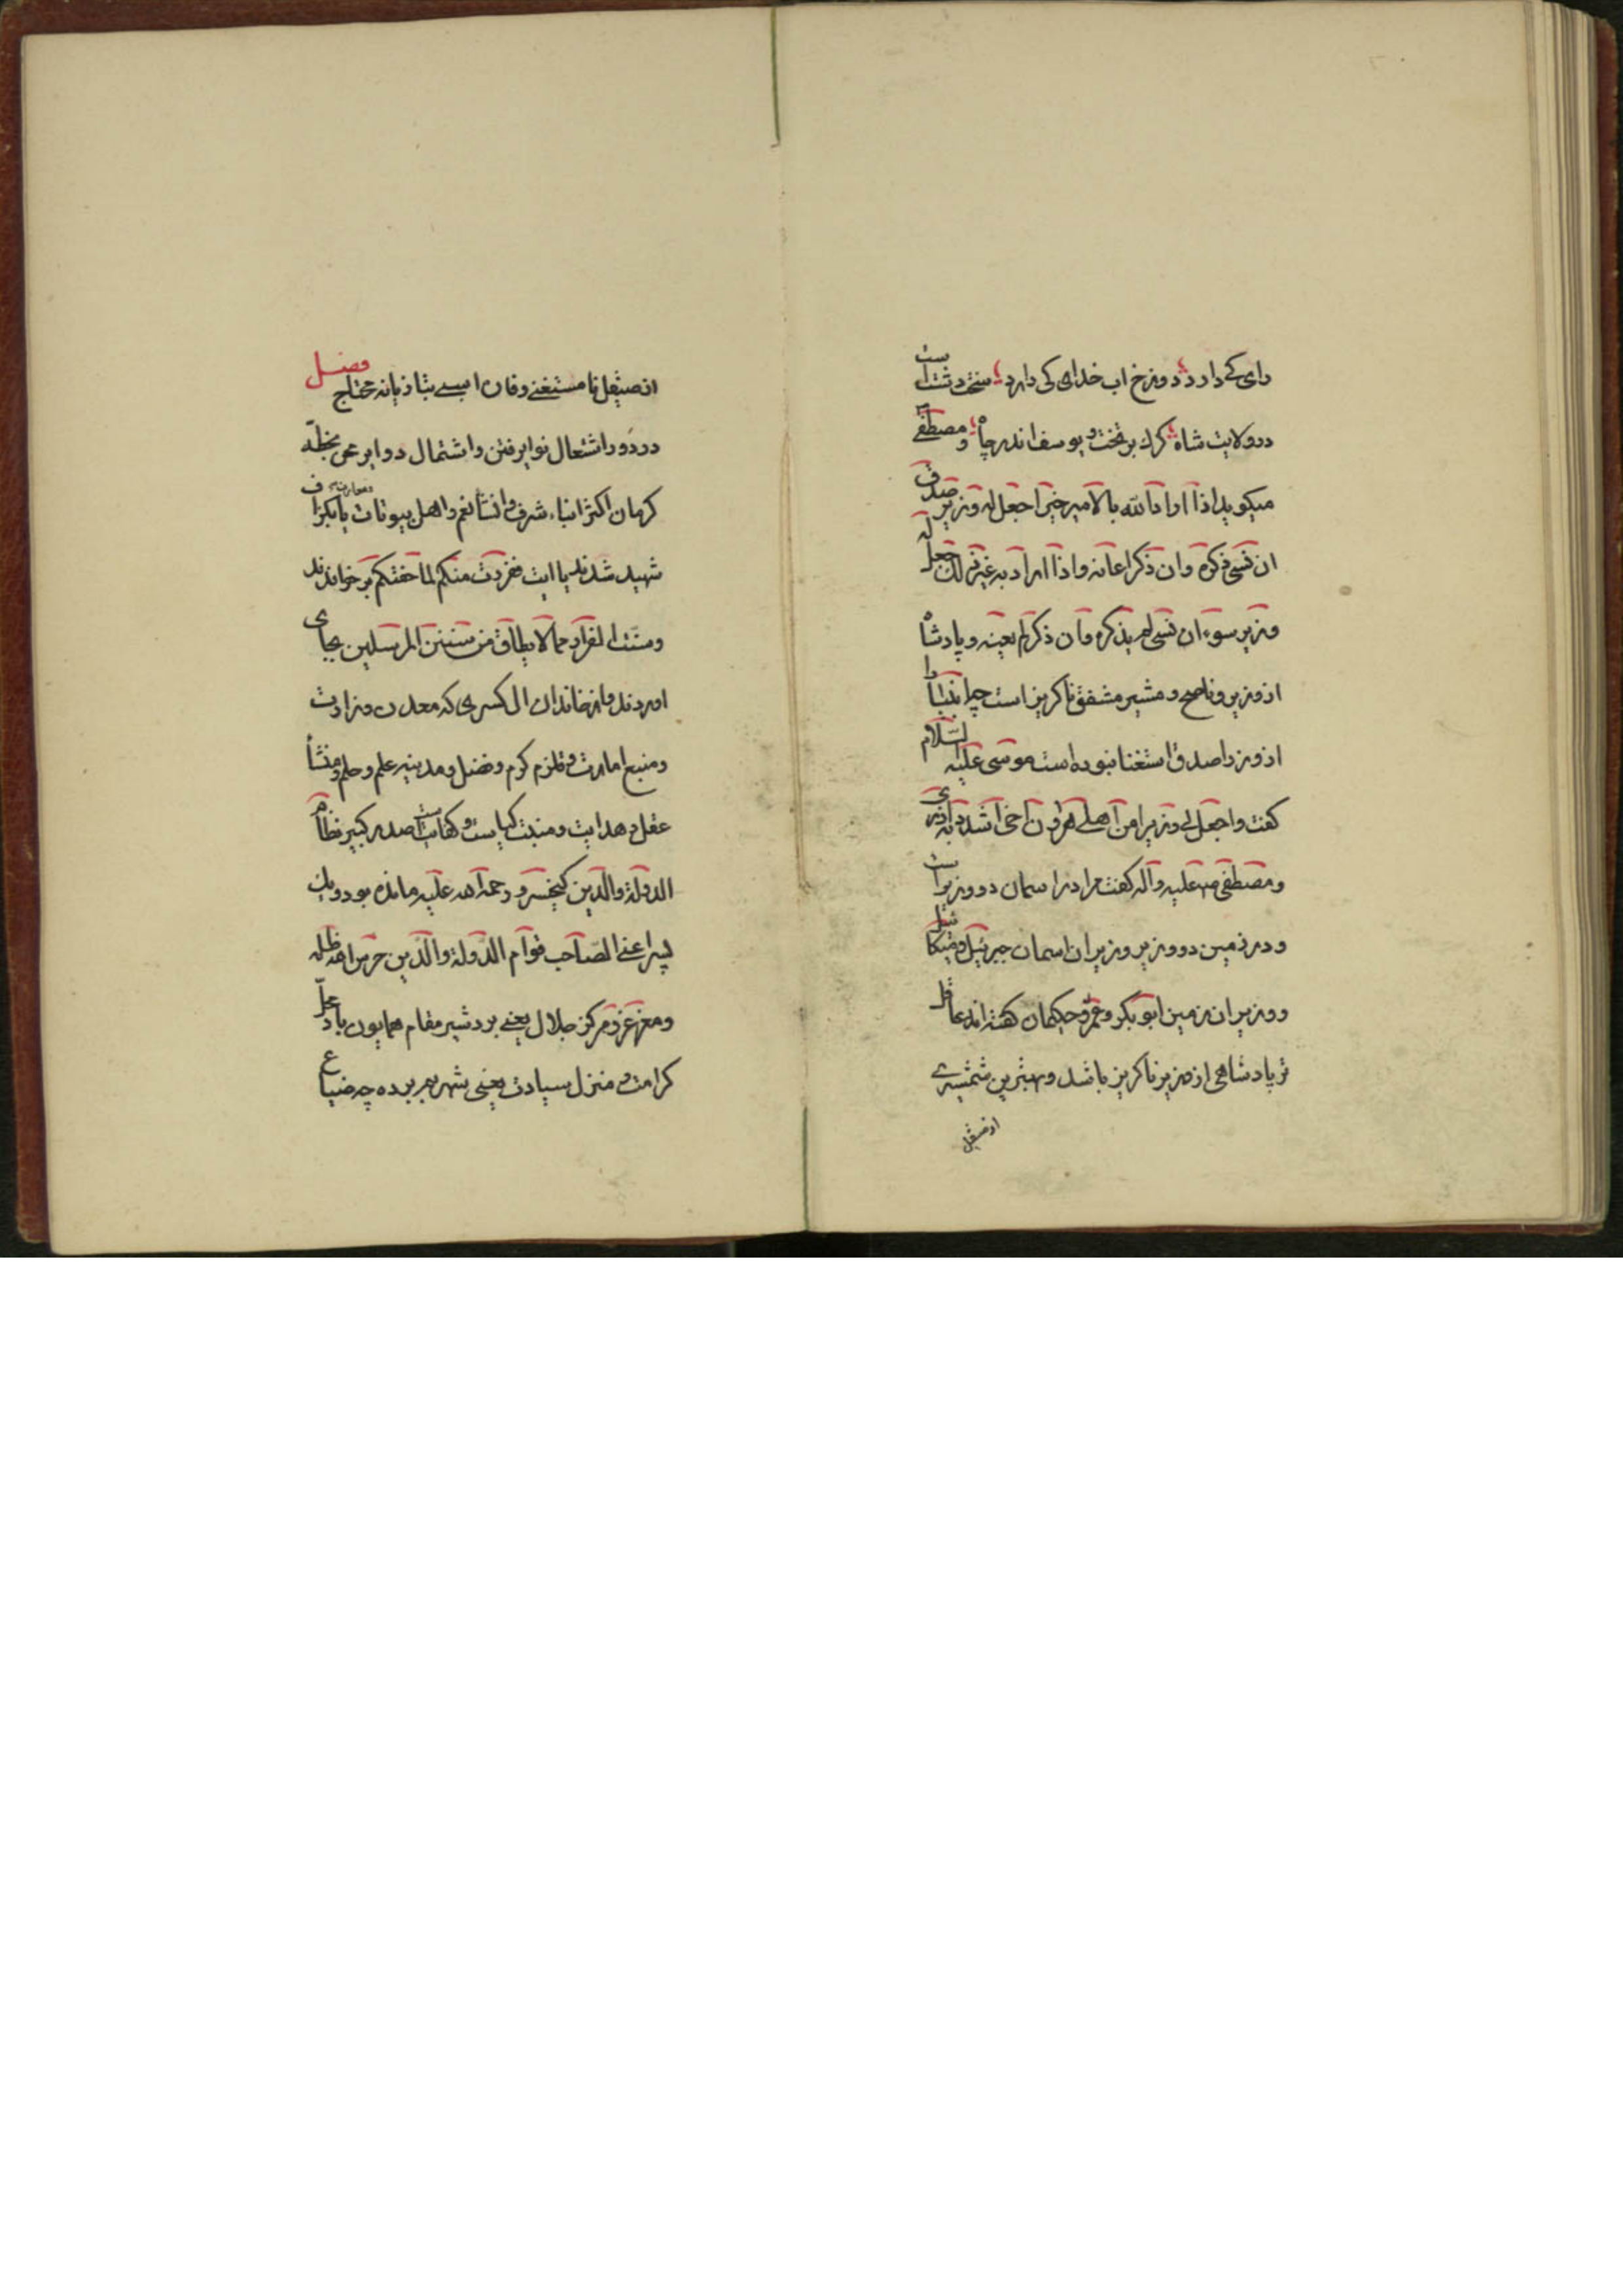 رای کے دارد دوزخ اب خدای کی دارد سخت دشت است
درولایت شاه کرك برتخت و یوسف اندر چاه و مصطفی
میکوید اذا اراد الله بالامیر خیرا جعل له وزیر صدق
ان نسی ذکره وان ذکر اعانه واذا اراد به غیر ذلك جعل له
وزیر سوء ان نسی لم یذکره وان ذکر لم یعنه و پادشاه
از وزیر و ناصح و مشیر مشفق ناکریز است چرا انبیا را
از وزرا صدق استغنا نبوده است موسی علیه السّلام
کفت واجعل لی وزیرا من اهلی هرون اخی اشدد به ازری
ومصطفی علیه وآله کفت مرا در اسمان دو وزیر است
و در زمین دو وزیر وزیران اسمان جبرئیل و میکائیل
و وزیران زمین ابوبکر و عمر و حکیمان کفته اند عاقل
تر پادشاهی از وزیر ناکریز باشد و بهترین شمشیری
از صیقل
از صیقل نا مستغنی وفاره اسبی بتازیانه محتاج فصل
در دور اشتعال نوایر فتن واشتمال دوایر محن بخطّه
کرمان اکثر ابناء شرف و انسا نعم و اهل بیوتات با معارف
شهید شدند یا ایت ففررت منکم لما خفتکم بر خواندند
وسنت الفرار مما لا یطاق من سنن المرسلین بجای
اوردند و از خاندان ال کسری که معدن وزارت
ومنبع امارت و قلزم کرم و فضل و مدینه علم و حلم و منشأ
عقل و هدایت و منبت کیاست و کفایت است صدر کبیر نظام
الدولة والدّین کیخسرو رحمة الله علیه مانده بود و یك
پسر اعنی الصّاحب قوام الدّولة والدّین حرس الله ظله
و مقر عز و مرکز جلال یعنی بردشیر مقام همایون با محل
کرامت و منزل سیادت یعنی شهر بم برده چه ضیاع